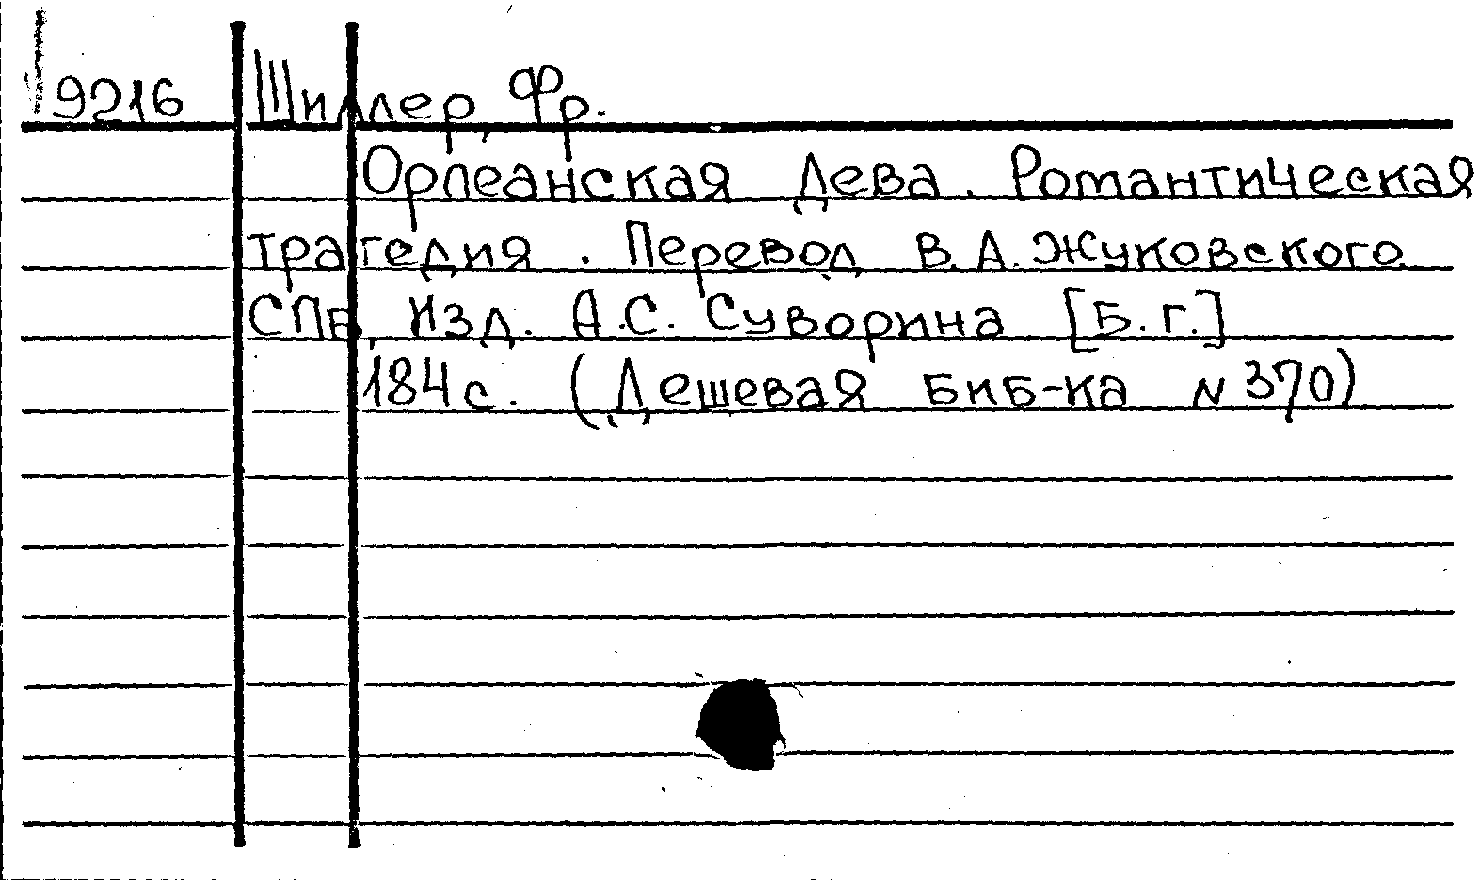 9216 Шиллер, Фр.
Орлеанская Дева. Романтическая
трагедия. Перевод В.А. Жуковского
СПб, Изд. А.С. Суворина [Б.г.]
184 с. (Дешевая биб-ка N 370)